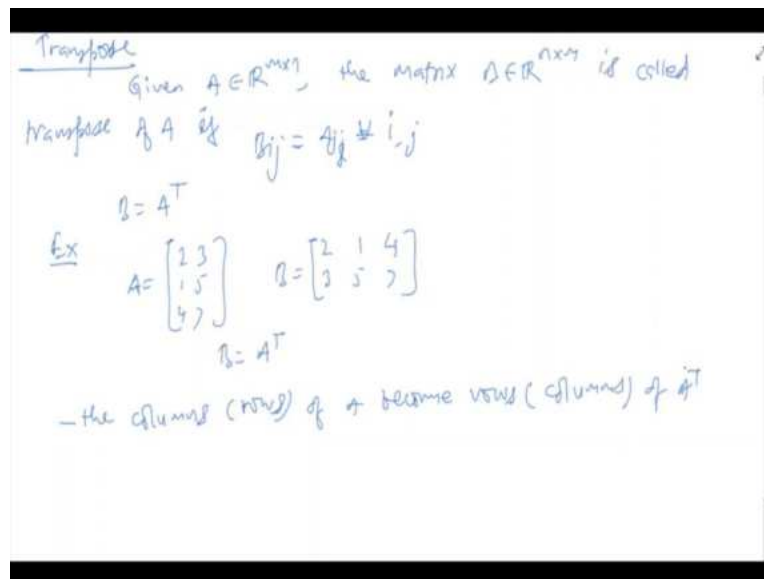 Transpose
Given A ∈ ℝ^{m×n}, the matrix B ∈ ℝ^{n×m} is called
transpose of A if B_{ij} = A_{ji} ∀ i, j
B = A^T
Ex
A = [2 3
1 5
4 7] B = [2 1 4
3 5 7]
B = A^T
– the columns (rows) of A become rows (columns) of A^T